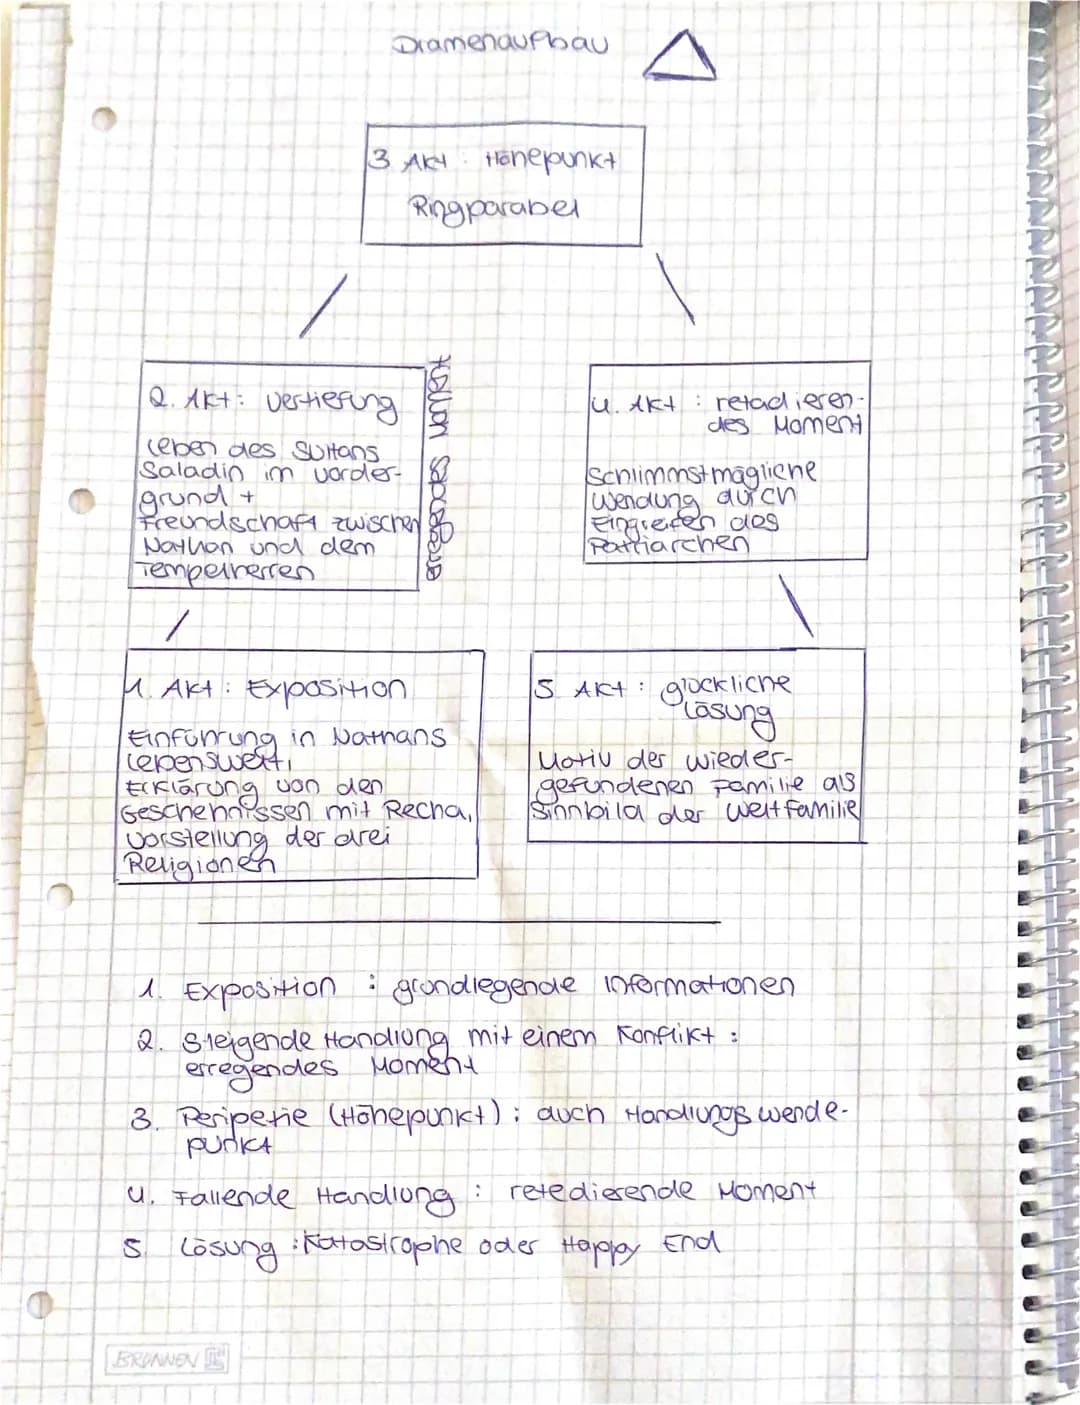 Dramenaufbau
3. Akt: Höhepunkt
Ringparabel
2. Akt: Vertiefung
Leben des Sultans
Saladin im Vorder-
grund +
Freundschaft zwischen
Nathan und dem
Tempelherren
4. Akt: retadieren-
des Moment
Schlimmstmögliche
Wendung durch
Eingreifen des
Patriarchen
1. Akt: Exposition
Einführung in Nathans
Lebenswelt,
Erklärung von den
Geschehnissen mit Recha,
Vorstellung der drei
Religionen
5. Akt: glückliche
Lösung
Motiv der wieder-
gefundenen Familie als
Sinnbild der Weltfamilie
1. Exposition : grundlegende Informationen
2. Steigende Handlung mit einem Konflikt :
erregendes Moment
3. Peripetie (Höhepunkt) : auch Handlungswende-
punkt
4. Fallende Handlung : retedierende Moment
5. Lösung : Katastrophe oder Happy End
BRUNNEN